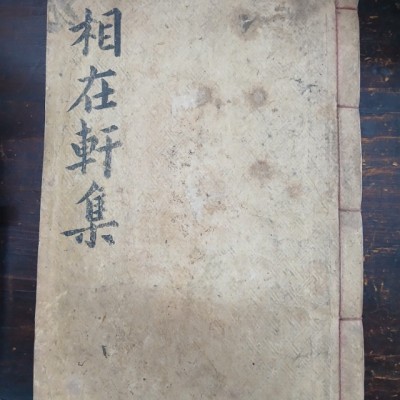 相在軒集